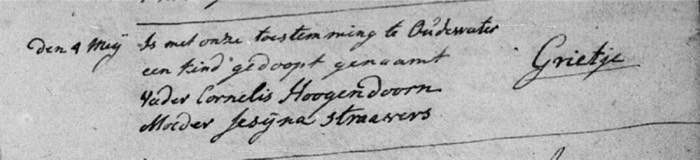 den 4 Meij Is met onze toestemming te Oudewater
een kind gedoopt genaamt Grietje
Vader Cornelis Hoogendoorn
Moeder Jesijna Straavers